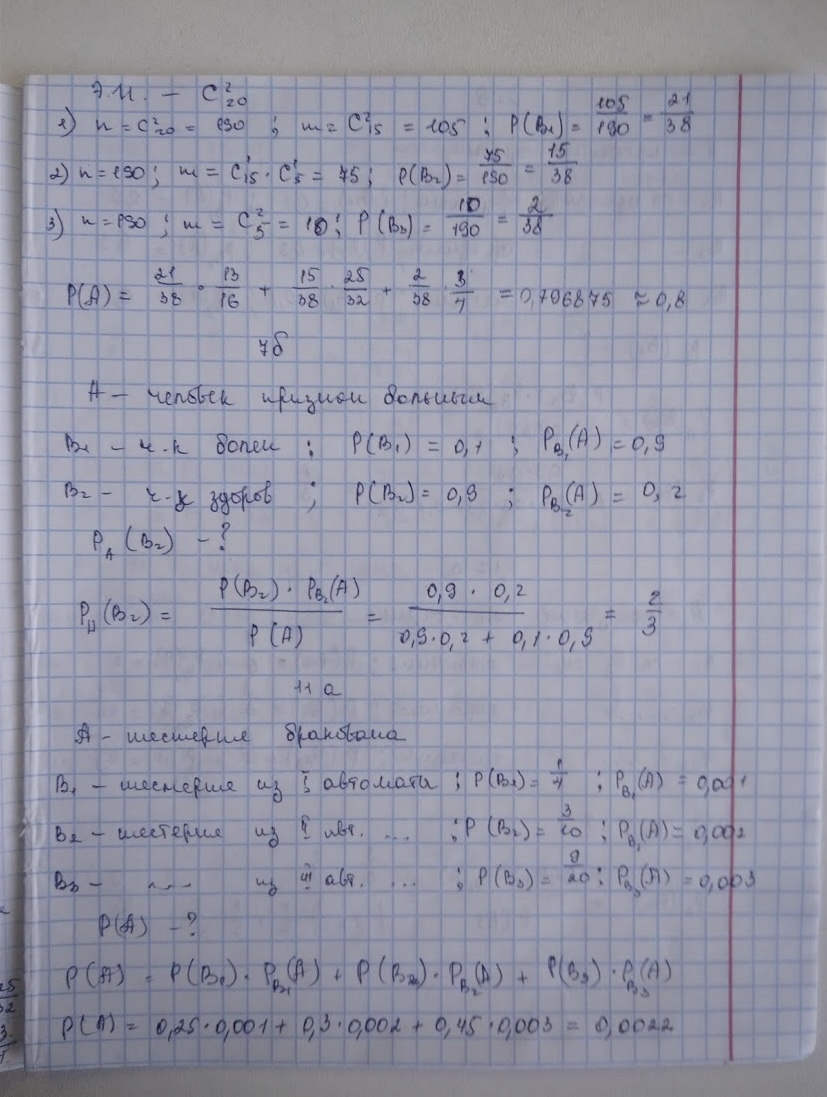 Э.И. – C²₂₀
1) n = C²₂₀ = 190 ; m = C²₁₅ = 105 ; P(B₁) = 105/190 = 21/38
2) n = 190 ; m = C¹₁₅ · C¹₅ = 75 ; P(B₂) = 75/190 = 15/38
3) n = 190 ; m = C²₅ = 10 ; P(B₃) = 10/190 = 2/38
P(A) = 21/38 · 13/16 + 15/38 · 25/32 + 2/38 · 3/4 = 0,796875 ≈ 0,8
7б
A – человек признан больным
B₁ – ч-к болен ; P(B₁) = 0,1 ; P_B₁(A) = 0,9
B₂ – ч-к здоров ; P(B₂) = 0,9 ; P_B₂(A) = 0,2
P_A(B₂) – ?
P_A(B₂) = P(B₂) · P_B₂(A) / P(A) = 0,9 · 0,2 / 0,9·0,2 + 0,1·0,9 = 2/3
11 а
A – шестерня бракована
B₁ – шестерня из I автомата ; P(B₁) = 1/4 ; P_B₁(A) = 0,001
B₂ – шестерня из II авт. ... ; P(B₂) = 3/10 ; P_B₂(A) = 0,002
B₃ – .... из III авт. ... ; P(B₃) = 9/20 ; P_B₃(A) = 0,003
P(A) – ?
P(A) = P(B₁) · P_B₁(A) + P(B₂) · P_B₂(A) + P(B₃) · P_B₃(A)
P(A) = 0,25·0,001 + 0,3·0,002 + 0,45·0,003 = 0,0022